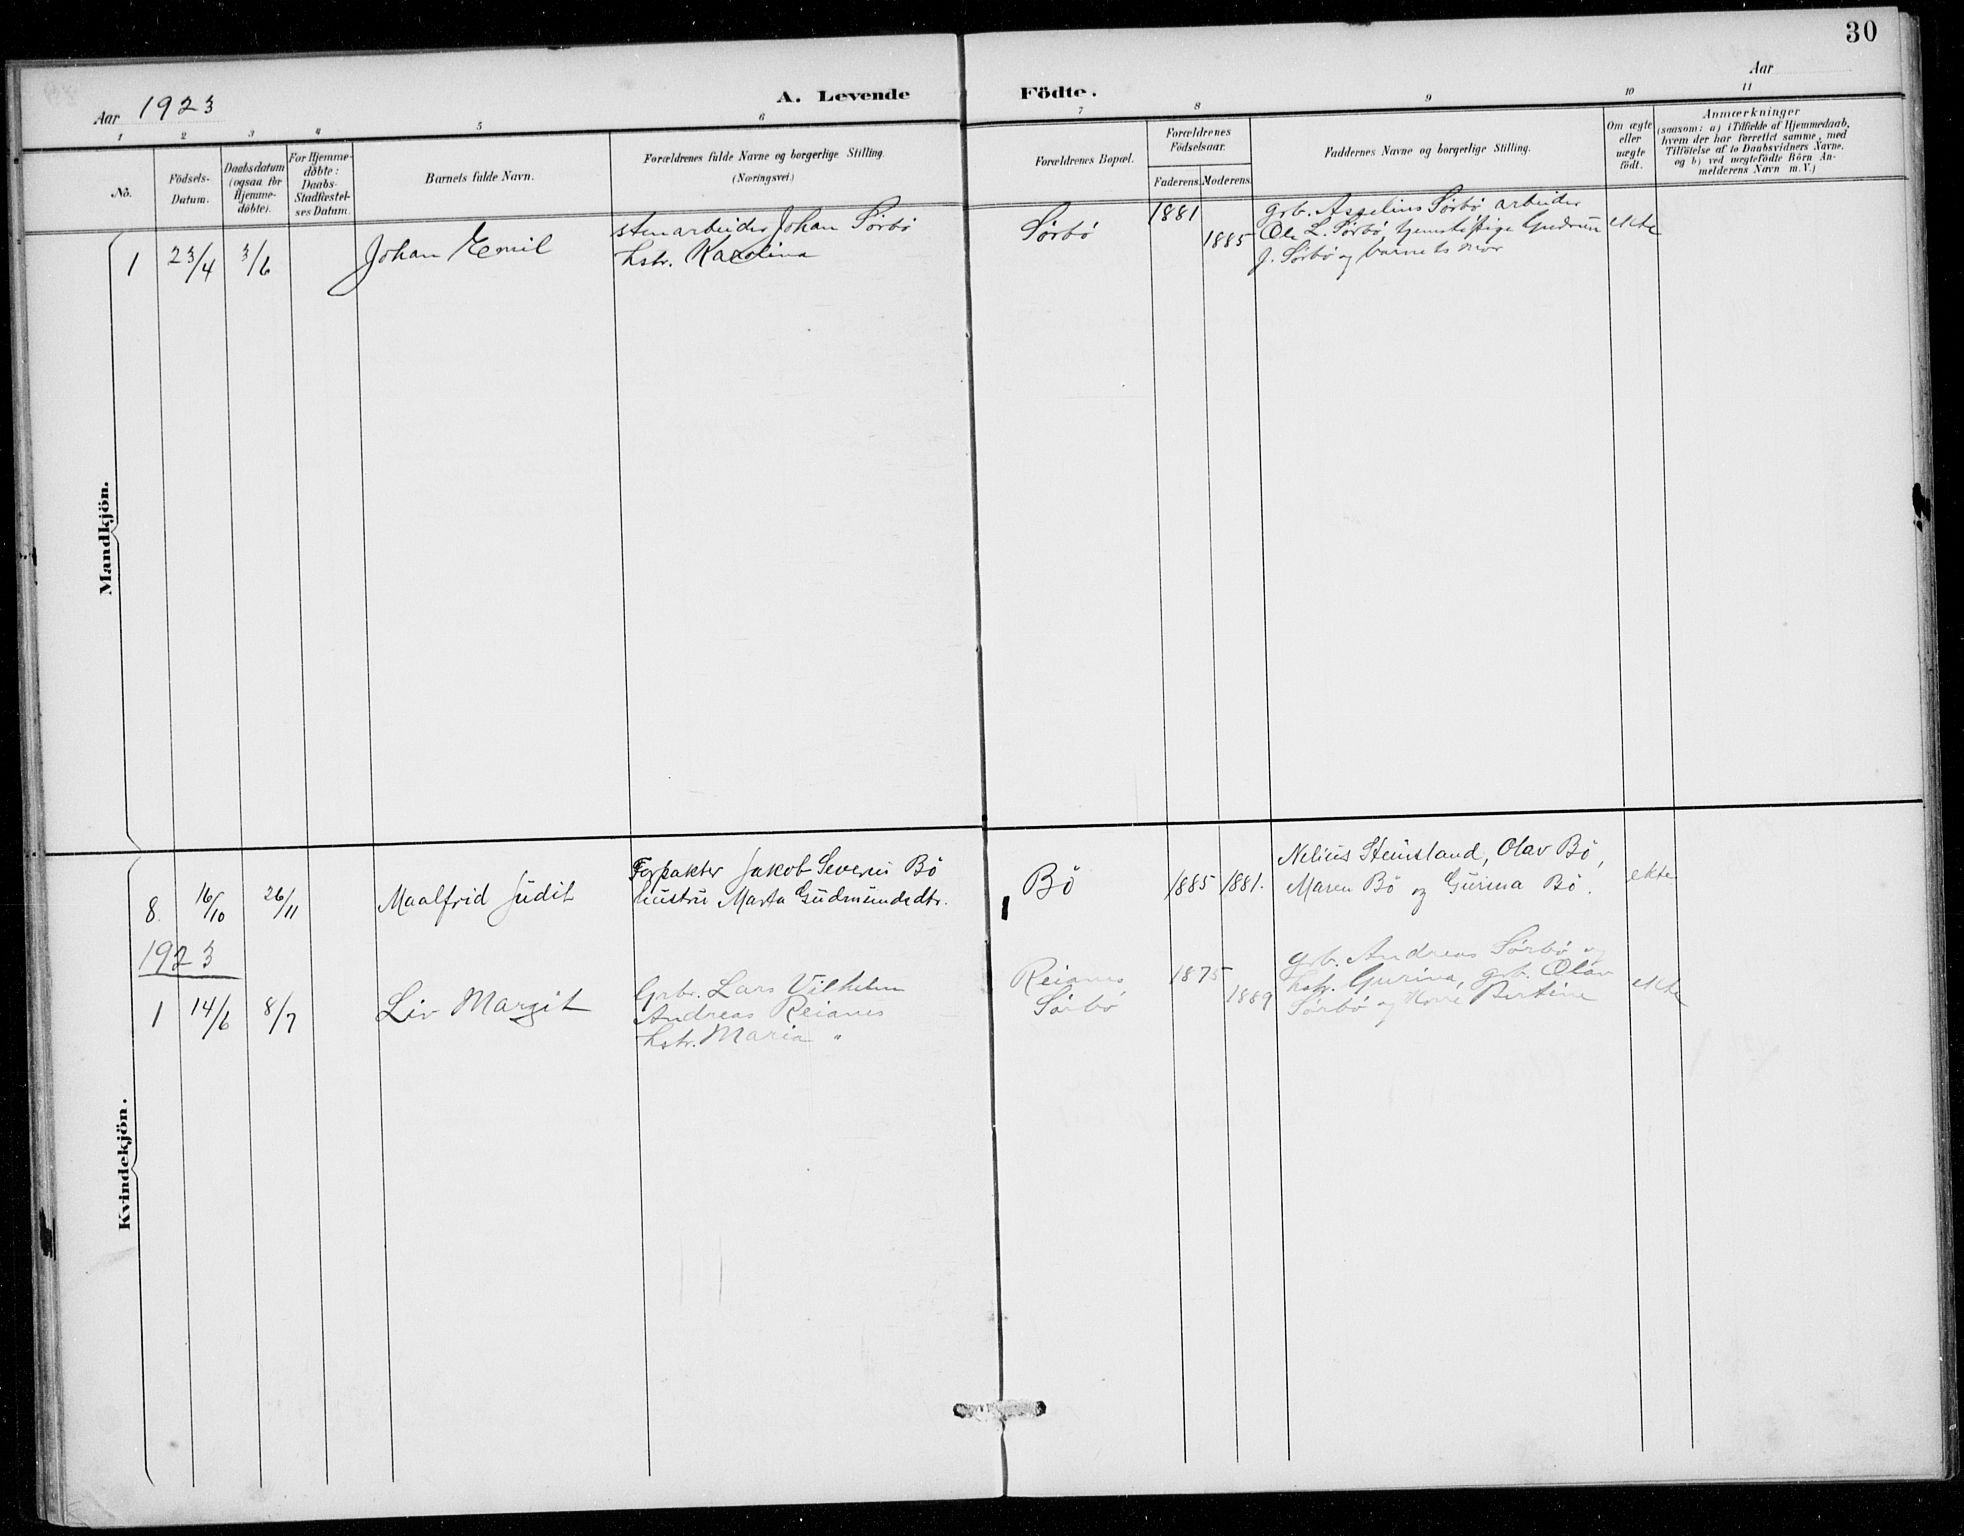 30
Aar 1923
A. Levende Födte.
Aar
1 2 3 4 5 6 7 8 9 10 11
No.
Födsels-Datum.
Daabsdatum (ogsaa for Hjemme-döbte).
For Hjemme-döbte: Daabs-Stadfæstel-ses Datum.
Barnets fulde Navn.
Forældrenes fulde Navne og borgerlige Stilling.
(Næringsvei.)
Forældrenes Bopæl.
Forældrenes Födselsaar.
Faderens. Moderens.
Faddernes Navne og borgerlige Stilling.
Om ægte eller uægte födt.
Anmærkninger
(saasom: a) i Tilfælde af Hjemmedaab,
hvem der har forrettet samme, med
Tilföielse af to Daabsvidners Navne,
og b) ved uægtefödte Börn An-
melderens Navn m. V.)
Mandkjön.
1 23/4 3/6 Johan Emil
stenarbeider Johan Sørbø
hstr. Karolina
Sørbø
1881
1885
grb. Asselius Sørbø arbeider
Ole L. Sørbø, Gudrun
J. Sørbø og barnets mor
ekte
Kvindekjön.
8. 16/10 26/11 Maalfrid Judit
Forpakter Jakob Severin Bö
hustru Marta Gudmundsdtr.
Bö
1885 1881.
Nelius Heimsland, Olav Bö,
Maren Bö og Gurina Bö.
ekte
1923
1 14/6 8/7 Liv Margit
Grb. Lars Vilhelm
Andreas Reianes
hstr. Maria "
Reianes
Sørbø
1875
1889
grb. Andreas Sørbø og
hstr. Gurina, grb. Olav
Sørbø og Bertine
ekte